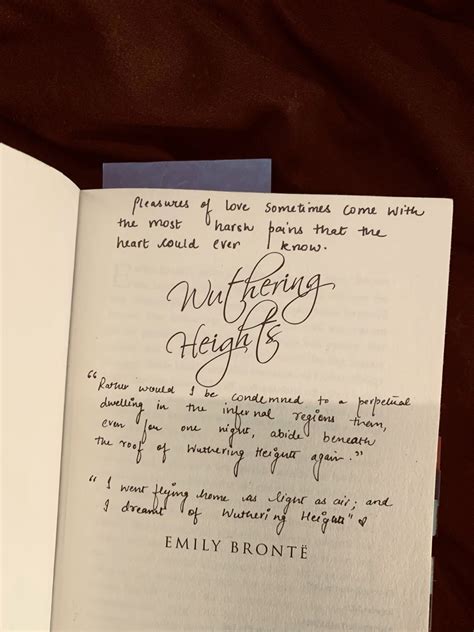 Pleasures of love sometimes come with
the most harsh pains that the
heart could ever know.
Wuthering
Heights
"Rather would I be condemned to a perpetual
dwelling in the infernal regions then,
even for one night, abide beneath
the roof of Wuthering Heights again."
"I went flying home as light as air; and
I dreamt of Wuthering Heights"
EMILY BRONTË